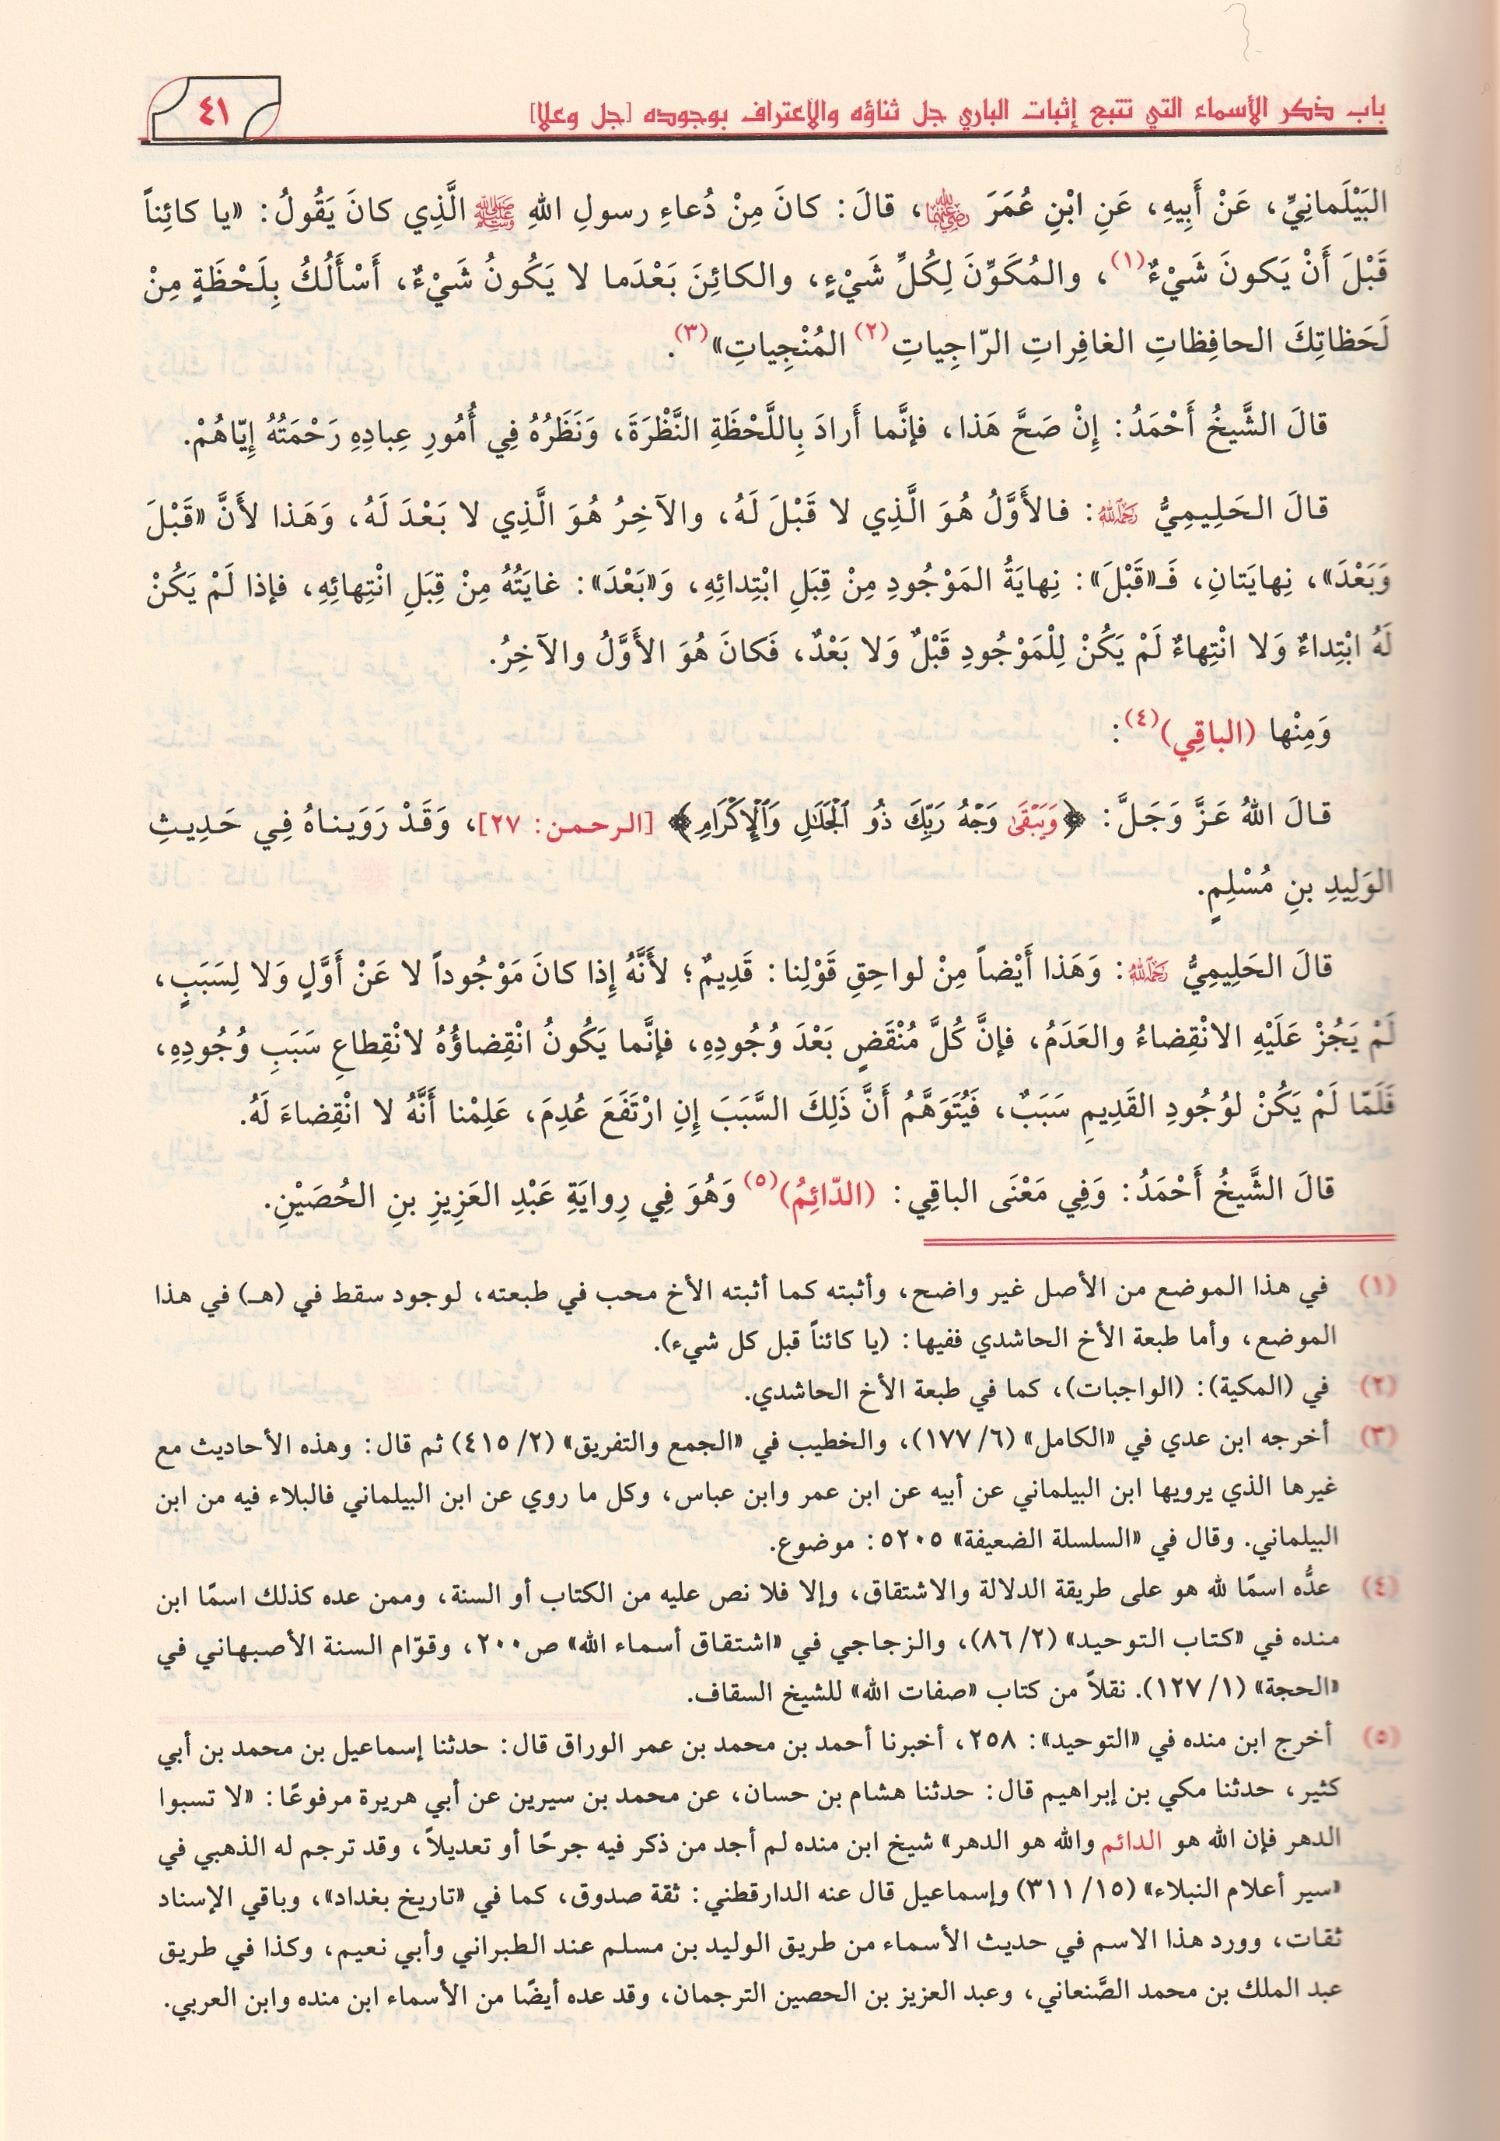 باب ذكر الأسماء التي تتبع إثبات الباري جل ثناؤه والاعتراف بوجوده [جل وعلا]
٤١
البَيْلَمانِيِّ، عَنْ أَبِيهِ، عَنِ ابْنِ عُمَرَ رضي الله عنهما، قالَ: كانَ مِنْ دُعاءِ رسولِ اللهِ ﷺ الَّذِي كانَ يَقُولُ: «يا كائِناً
قَبْلَ أَنْ يَكونَ شَيْءٌ(١)، والمُكَوِّنَ لِكُلِّ شَيْءٍ، والكائِنَ بَعْدَما لا يَكُونُ شَيْءٌ، أَسْأَلُكُ بِلَحْظَةٍ مِنْ
لَحَظاتِكَ الحافِظاتِ الغافِراتِ الرّاجِياتِ(٢) المُنْجِياتِ»(٣).
قالَ الشَّيخُ أَحْمَدُ: إِنْ صَحَّ هَذا، فإنَّما أَرادَ بِاللَّحْظَةِ النَّظْرَةَ، وَنَظَرُهُ فِي أُمُورِ عِبادِهِ رَحْمَتُهُ إِيّاهُمْ.
قالَ الحَلِيمِيُّ رحمه الله: فالأَوَّلُ هُوَ الَّذِي لا قَبْلَ لَهُ، والآخِرُ هُوَ الَّذِي لا بَعْدَ لَهُ، وَهَذا لأَنَّ «قَبْلَ
وَبَعْدَ»، نِهايَتانِ، فَـ«قَبْلَ»: نِهايَةُ المَوْجُودِ مِنْ قِبَلِ ابْتِدائِهِ، وَ«بَعْدَ»: غايَتُهُ مِنْ قِبَلِ انْتِهائِهِ، فإذا لَمْ يَكُنْ
لَهُ ابْتِداءٌ وَلا انْتِهاءٌ لَمْ يَكُنْ لِلْمَوْجُودِ قَبْلٌ وَلا بَعْدٌ، فَكانَ هُوَ الأَوَّلُ والآخِرُ.
وَمِنْها (الباقِي)(٤):
قالَ اللهُ عَزَّ وَجَلَّ: ﴿وَيَبْقَىٰ وَجْهُ رَبِّكَ ذُو الْجَلَٰلِ وَالْإِكْرَامِ﴾ [الرحمن: ٢٧]، وَقَدْ رَوَيناهُ فِي حَدِيثِ
الوَلِيدِ بنِ مُسْلِمٍ.
قالَ الحَلِيمِيُّ رحمه الله: وَهَذا أَيْضاً مِنْ لواحِقِ قَوْلِنا: قَدِيمٌ؛ لأَنَّهُ إِذا كانَ مَوْجُوداً لا عَنْ أَوَّلٍ وَلا لِسَبَبٍ،
لَمْ يَجُزْ عَلَيْهِ الانْقِضاءُ والعَدَمُ، فإنَّ كُلَّ مُنْقَضٍ بَعْدَ وُجُودِهِ، فإنَّما يَكُونُ انْقِضاؤُهُ لانْقِطاعِ سَبَبِ وُجُودِهِ،
فَلَمّا لَمْ يَكُنْ لوُجُودِ القَدِيمِ سَبَبٌ، فَيُتَوَهَّمُ أَنَّ ذَلِكَ السَّبَبَ إِنِ ارْتَفَعَ عُدِمَ، عَلِمْنا أَنَّهُ لا انْقِضاءَ لَهُ.
قالَ الشَّيخُ أَحْمَدُ: وَفِي مَعْنَى الباقِي: (الدّائِمُ)(٥) وَهُوَ فِي رِوايَةِ عَبْدِ العَزِيزِ بنِ الحُصَيْنِ.
(١) في هذا الموضع من الأصل غير واضح، وأثبته كما أثبته الأخ محب في طبعته، لوجود سقط في (هـ) في هذا
الموضع، وأما طبعة الأخ الحاشدي ففيها: (يا كائناً قبل كل شيء).
(٢) في (المكية): (الواجبات)، كما في طبعة الأخ الحاشدي.
(٣) أخرجه ابن عدي في «الكامل» (٦/ ١٧٧)، والخطيب في «الجمع والتفريق» (٢/ ٤١٥) ثم قال: وهذه الأحاديث مع
غيرها الذي يرويها ابن البيلماني عن أبيه عن ابن عمر وابن عباس، وكل ما روي عن ابن البيلماني فالبلاء فيه من ابن
البيلماني. وقال في «السلسلة الضعيفة» ٥٢٠٥: موضوع.
(٤) عدُّه اسمًا لله هو على طريقة الدلالة والاشتقاق، وإلا فلا نص عليه من الكتاب أو السنة، وممن عده كذلك اسمًا ابن
منده في «كتاب التوحيد» (٢/ ٨٦)، والزجاجي في «اشتقاق أسماء الله» ص٢٠٠، وقوّام السنة الأصبهاني في
«الحجة» (١/ ١٢٧). نقلاً من كتاب «صفات الله» للشيخ السقاف.
(٥) أخرج ابن منده في «التوحيد»: ٢٥٨، أخبرنا أحمد بن محمد بن عمر الوراق قال: حدثنا إسماعيل بن محمد بن أبي
كثير، حدثنا مكي بن إبراهيم قال: حدثنا هشام بن حسان، عن محمد بن سيرين عن أبي هريرة مرفوعًا: «لا تسبوا
الدهر فإن الله هو الدائم والله هو الدهر» شيخ ابن منده لم أجد من ذكر فيه جرحًا أو تعديلاً، وقد ترجم له الذهبي في
«سير أعلام النبلاء» (١٥/ ٣١١) وإسماعيل قال عنه الدارقطني: ثقة صدوق، كما في «تاريخ بغداد»، وباقي الإسناد
ثقات، وورد هذا الاسم في حديث الأسماء من طريق الوليد بن مسلم عند الطبراني وأبي نعيم، وكذا في طريق
عبد الملك بن محمد الصَّنعاني، وعبد العزيز بن الحصين الترجمان، وقد عده أيضًا من الأسماء ابن منده وابن العربي.